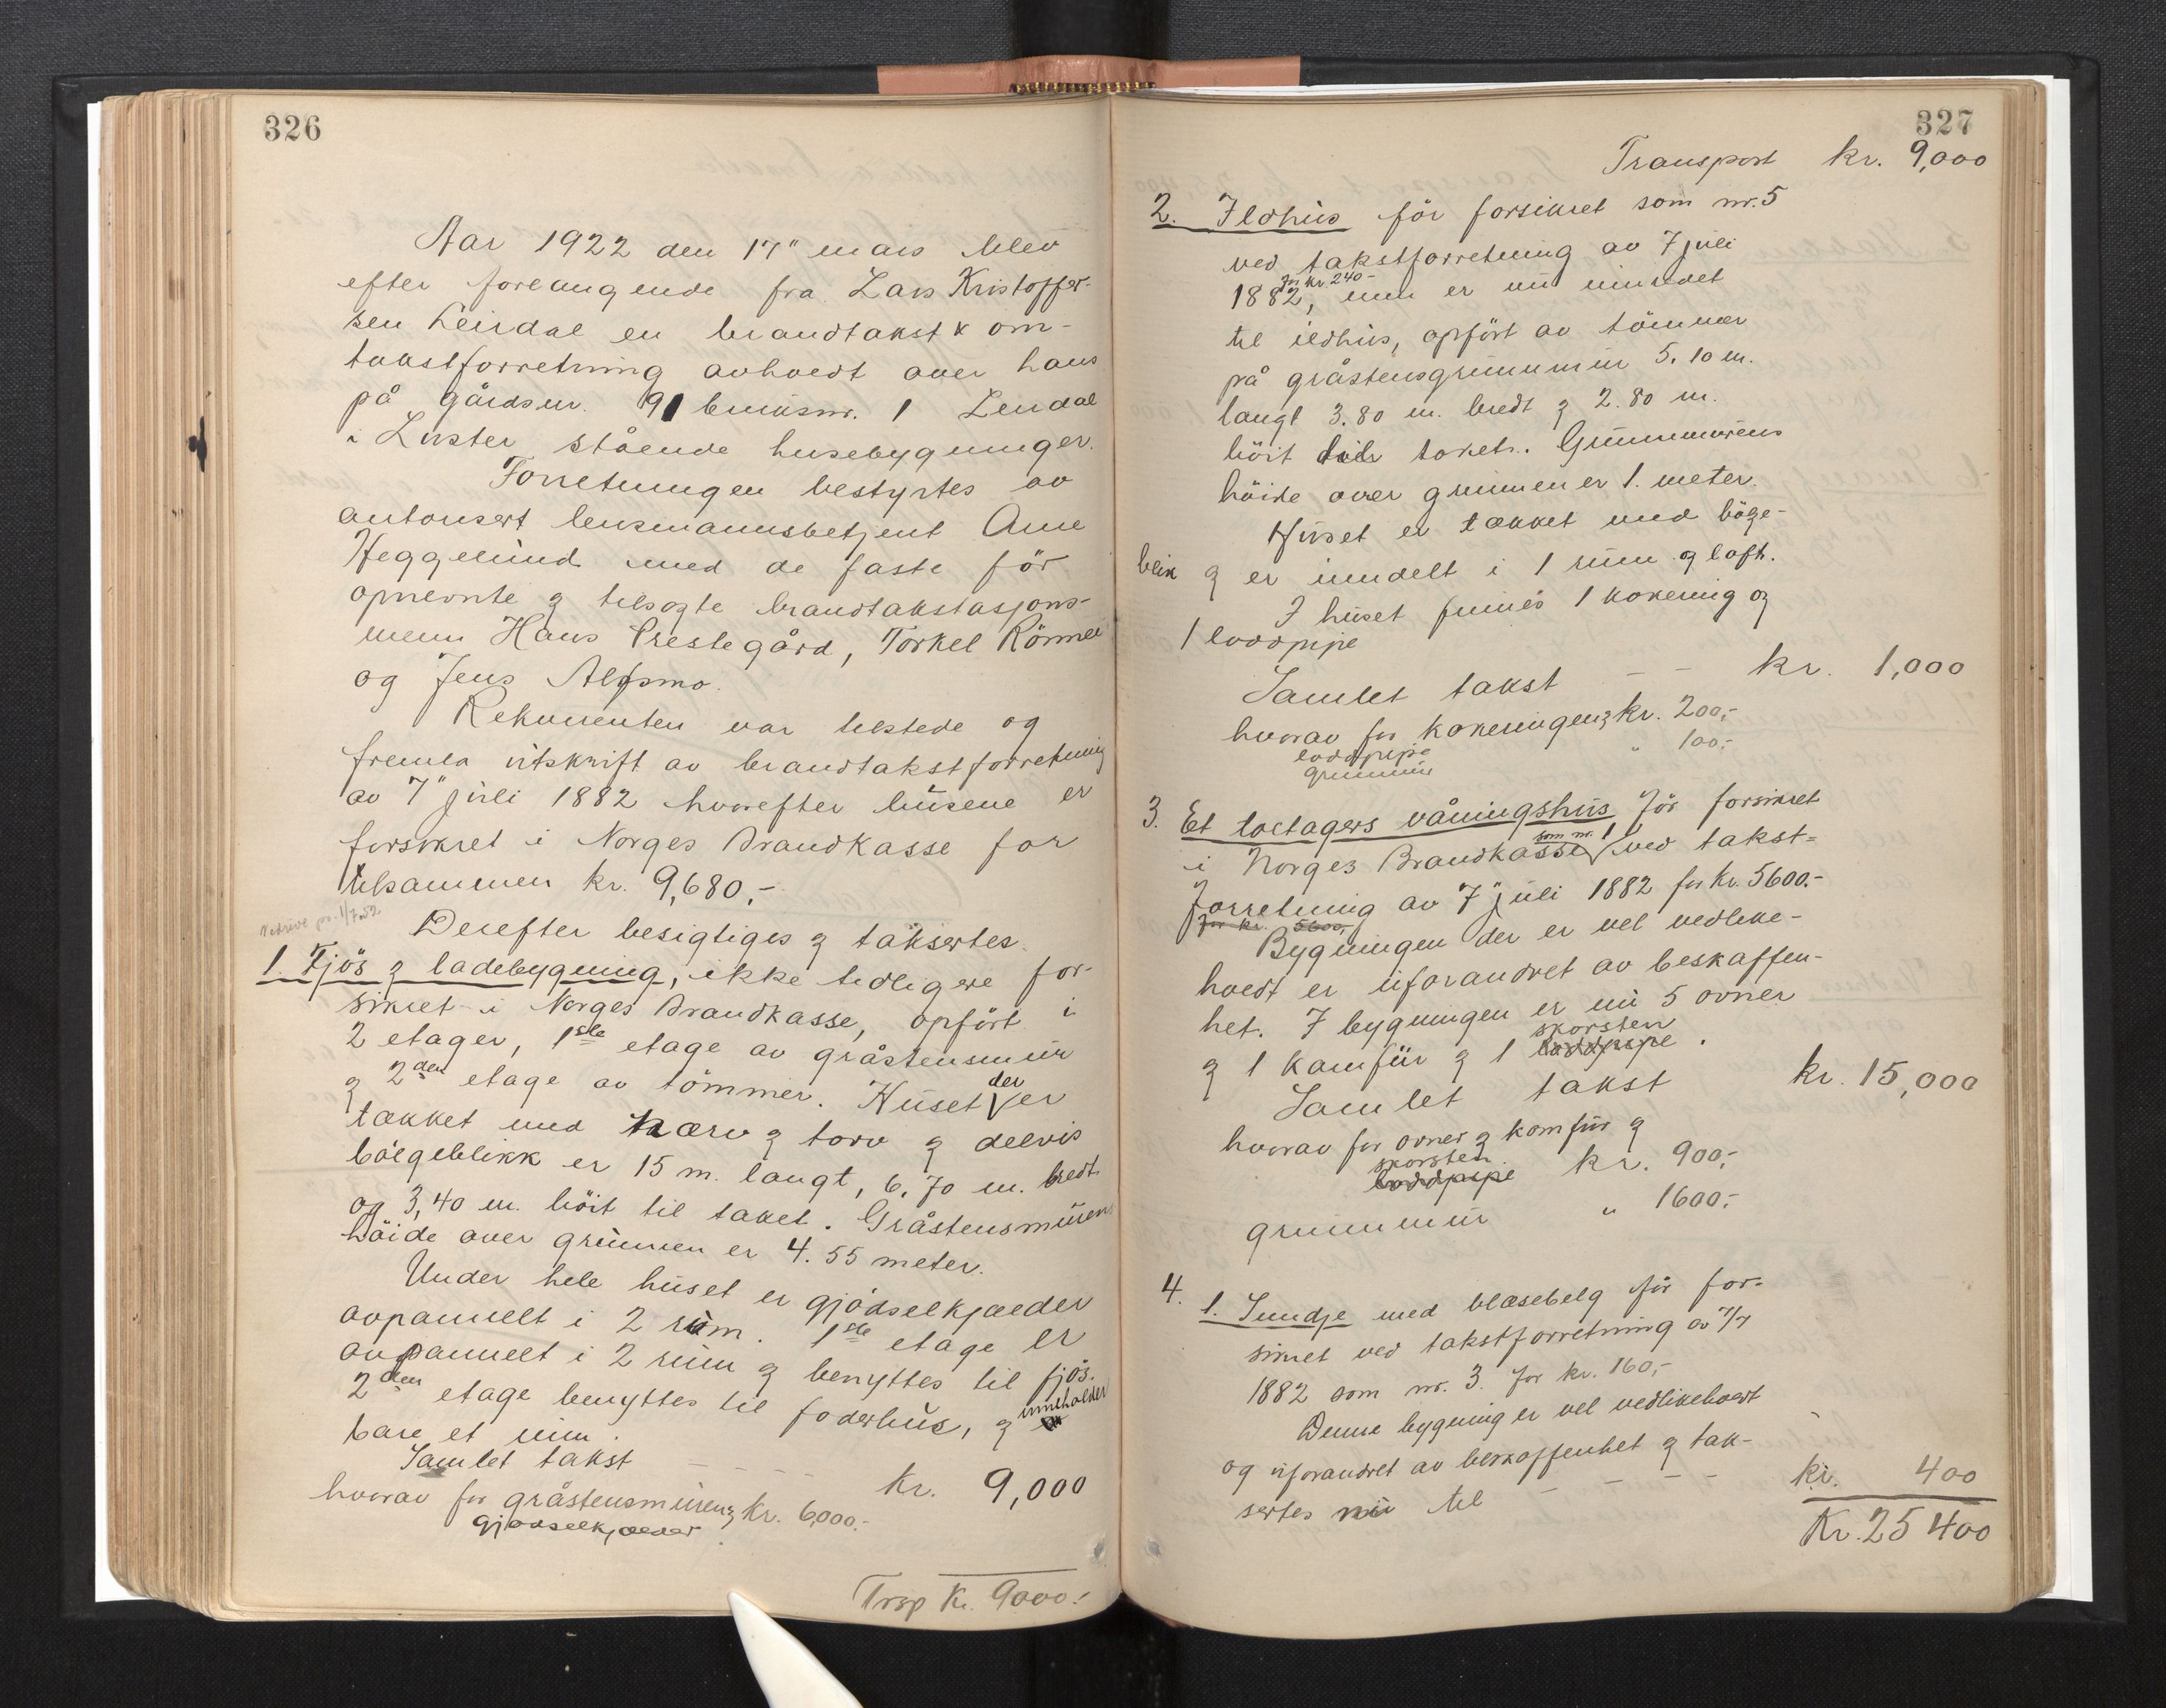 326
Aar 1922 den 17" mars blev
efter forlangende fra Lars Kristoffer-
sen Leirdal en brandtakst & om-
takstforretning avholdt over hans
på gårdsnr. 91 bruksnr. 1 Leirdal
i Luster stående husebygninger.
Forretningen bestyrtes av
autorisert lensmannsbetjent Arne
Heggelund med de faste før
opnevnte & tilsagte brandtakstasjons-
menn Hans Prestegård, Torkel Rönnei
og Jens Alsmo.
Rekvirenten var tilstede og
fremla utskrift av brandtakstforretning
av 7" juli 1882 hvorefter husene er
forsikret i Norges Brandkasse for
tilsammen kr. 9,680,-
Derefter besigtiges & taksertes.
1. Fjös & ladebygning, ikke tidligere for-
sikret i Norges Brandkasse, opfört i
2 etager, 1ste etage av gråstensmur
& 2den etage av tömmer. Huset der er
tækket med næver & torv & delvis
bölgeblikk er 15 m. langt, 6,70 m. bredt
og 3,40 m. höit til taket. Gråstensmurens
höide over grunnen er 4.55 meter.
Under hele huset er gjödselkjælder
avpannelt i 2 rum. 1ste etage er
avpannelt i 2 rum & benyttes til fjös.
2den etage benyttes til foderhus, & inneholder
bare et rum.
Samlet takst - - - - kr. 9,000
hvorav for gråstensmuren & kr. 6,000.-
gjödselkjælder
Trsp Kr. 9000.-
327
Transport kr. 9,000
2. Ildhus för forsikret som nr. 5
ved takstforretning av 7 juli
for kr. 240-
1882, men er nu innredet
til ildhus, opfört av tömmer
på gråstensgrunnmur 5.10 m.
langt 3.80 m. bredt & 2.80 m.
höit til taket. Grunnmurens
höide over grunnen er 1. meter.
Huset er tækket med bölge-
blik & er inndelt i 1 rum og loft.
I huset finnes 1 kokering og
1 loddpipe
Samlet takst - - kr. 1,000
hvorav for kokeringen & kr. 200,-
loddpipe
grunnmur " 100,-
3. Et toetagers våningshus för forsikret
i Norges Brandkasse som nr. 1 ved takst=
forretning av 7" juli 1882 for kr. 5600.-
for kr. 5600,
Bygningen der er vel vedlike-
holdt er uforandret av beskaffen-
het. I bygningen er nu 5 ovner
& 1 komfür & 1 loddpipe skorsten.
Samlet takst kr. 15,000
hvorav for ovner & komfür &
skorsten
loddpipe kr. 900,-
grunnmur " 1600,-
4. 1. Smidje med blæsebelg för for-
sikret ved takstforretning av 7/7
1882 som nr. 3. for kr. 160,-
Denne bygning er vel vedlikeholdt
og uforandret av beskaffenhet & tak-
sertes nu til - - - - kr. 400
Kr. 25 400